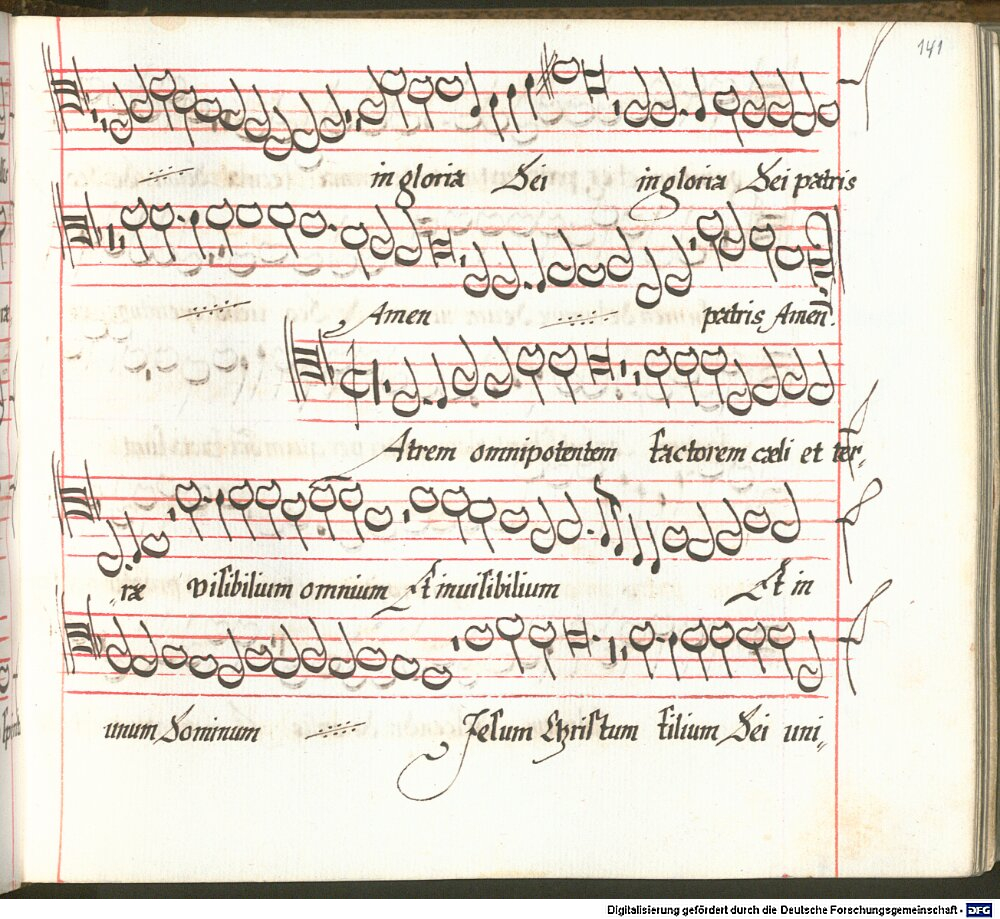 141
in gloria Dei in gloria Dei patris
Amen patris Amen.
Atrem omnipotentem factorem cæli et ter-
ræ visibilium omnium Et inuisibilium Et in
unum Dominum Jesum Christum filium Dei uni„
Digitalisierung gefördert durch die Deutsche Forschungsgemeinschaft - DFG